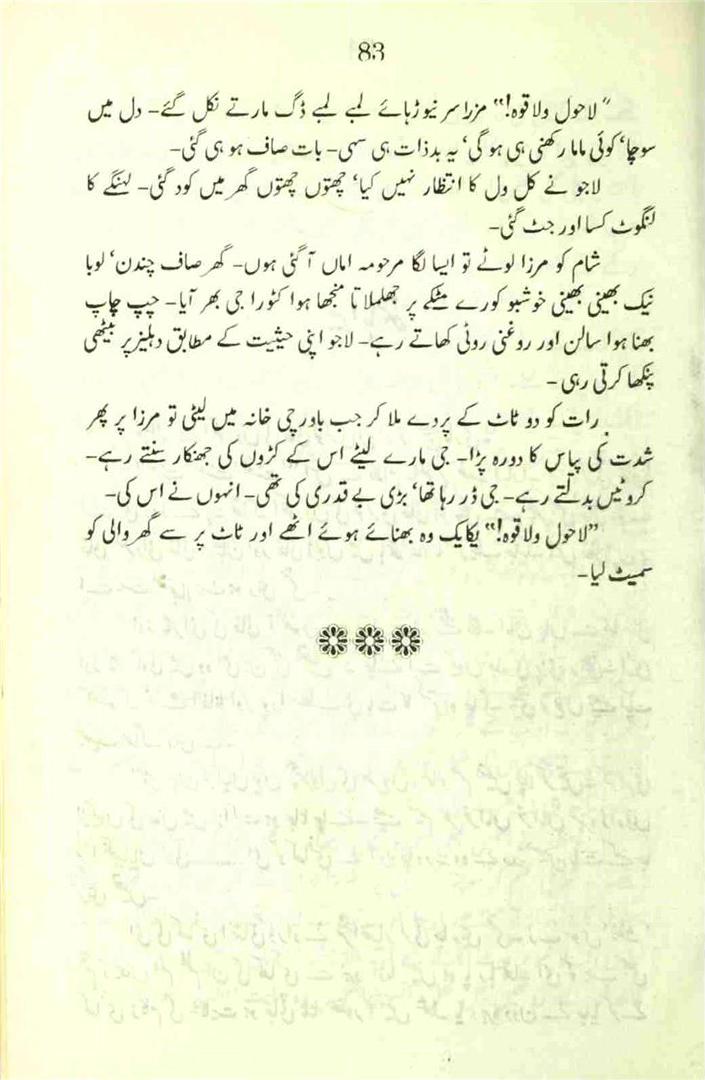 83
"لاحول ولا قوہ!" مزرا سر نیوڑہائے لمبے لمبے ڈگ مارتے نکل گئے۔ دل میں
سوچا، کوئی ماما رکھنی ہی ہو گی، یہ بدذات ہی سہی۔ بات صاف ہو ہی گئی۔
لاجو نے کل ول کا انتظار نہیں کیا، چھتوں چھتوں گھر میں کود گئی۔ لہنگے کا
لنگوٹ کسا اور جٹ گئی۔
شام کو مرزا لوٹے تو ایسا لگا مرحومہ اماں آ گئی ہوں۔ گھر صاف چندن، لوبا
نیک بھینی بھینی خوشبو کورے مٹکے پر جھلملا تا منجھا ہوا کٹورا جی بھر آیا۔ چپ چاپ
بھنا ہوا سالن اور روغنی روٹی کھاتے رہے۔ لاجو اپنی حیثیت کے مطابق دہلیز پر بیٹھی
پنکھا کرتی رہی۔
رات کو دو ٹاٹ کے پردے ملا کر جب باورچی خانہ میں لیٹی تو مرزا پر پھر
شدت کی پیاس کا دورہ پڑا۔ جی مارے لیٹے اس کے کڑوں کی جھنکار سنتے رہے۔
کروٹیں بدلتے رہے۔ جی ڈر رہا تھا، بڑی بے قدری کی تھی۔ انہوں نے اس کی۔
"لاحول ولا قوہ!" یکایک وہ بھنائے ہوئے اٹھے اور ٹاٹ پر سے گھر والی کو
سمیٹ لیا۔